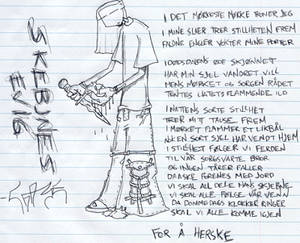 SKEBNES
EVIG
I DET MØRKESTE MØRKE
JEG
I MINE
STILLHETEN FREM
PORTER
I DØDSDØNS RØE SKJØNNET
HAR MIN SJEL VANDRET VILL
MENS MØRKET OG SORGEN RÅDET
TENTES LIVETS FLAMMENDE ILD
I NATTENS SORTE STILLHET
TRER MITT TAUSE FREM
I MØRKET FLAMMER ET LIKBÅL
EN SORT SJEL HAR VENDT HJEM
I STILLHET FØLGER VI FERDEN
TIL VÅR SORGSVARTE BROR
OG INGEN TÅRER FALLER
DA ASKE FORENES MED JORD
VI SKAL ALL DELE HANS SKJEBNE
VI SKAL ALLE FØLGE VÅR VENN
DA DOMMEDAGS KLOKKER RINGER
SKAL VI ALLE KOMME IGJEN
FOR Å HERSKE